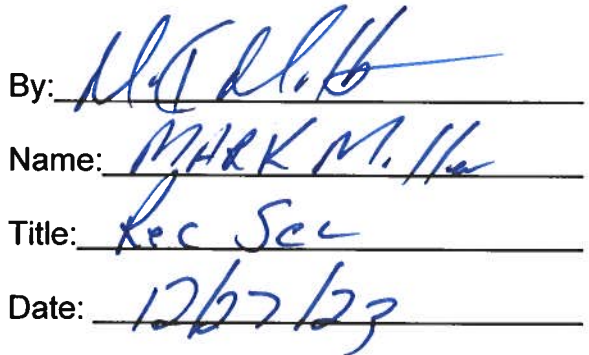 By:
Name: MARK Miller
Title: Rec Sec
Date: 12/27/23